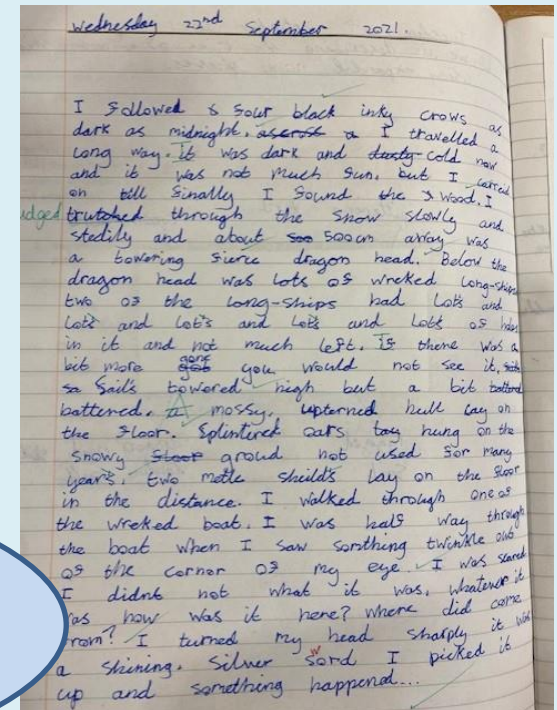 Wednesday 22nd September 2021.
I followed & four black inky crows as
dark as midnight. across a I travelled a
long way. It was dark and dusty cold now
and it was not much sun, but I carred
on till finally I found the wood. I
udged trutched through the snow slowly and
stedily and about 500cm away was
a towering fierce dragon head. Below the
dragon head was lots of wreked long-ships
two of the long-ships had lots and
lots and lots and lots and lots of holes
in it and not much left. If there was a
bit more gone you would not see it,
sa Sails towered high but a bit
battered. A mossy, upterned hull lay on
the floor. Splintired oars hung on the
snowy floor groud not used for many
years. two metle sheilds lay on the floor
in the distance. I walked through one of
the wreked boat. I was half way through
the boat when I saw somthing twinkle out
of the corner of my eye. I was scared
I didnt not what it was, whatever it
as how was it here? Where did come
rom? I turned my head sharply it was
a shining. Silver sord I picked it
w
up and something happened...